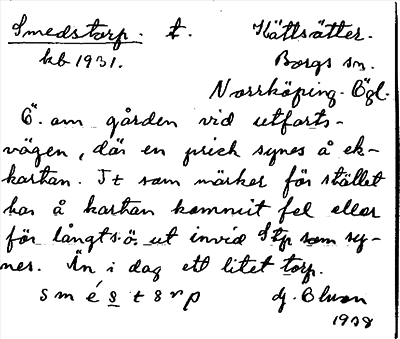 Smedstorp. t. Hättsätter.
kb 1931. Borgs sn.
Norrköping. Ögl.
Ö. om gården vid utfarts-
vägen, där en prick synes å ek-
kartan. T t som märker för stället
har å kartan kommit fel eller
för långt s.ö. ut invid Stp som sy-
nes. Än i dag ett litet torp.
s m é s t ɜ r p dj.
1938